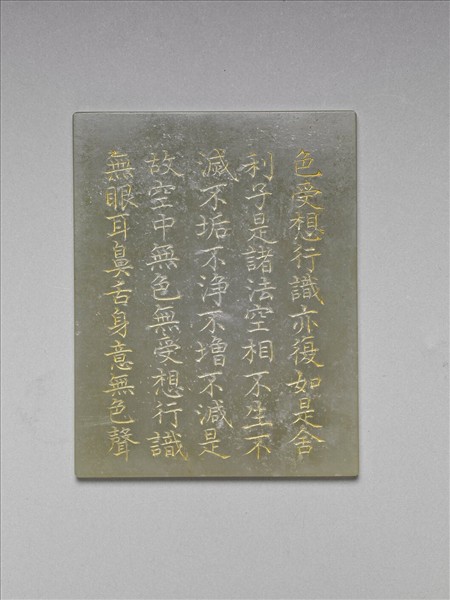 色受想行識亦復如是舍
利子是諸法空相不生不
滅不垢不淨不增不減是
故空中無色無受想行識
無眼耳鼻舌身意無色聲